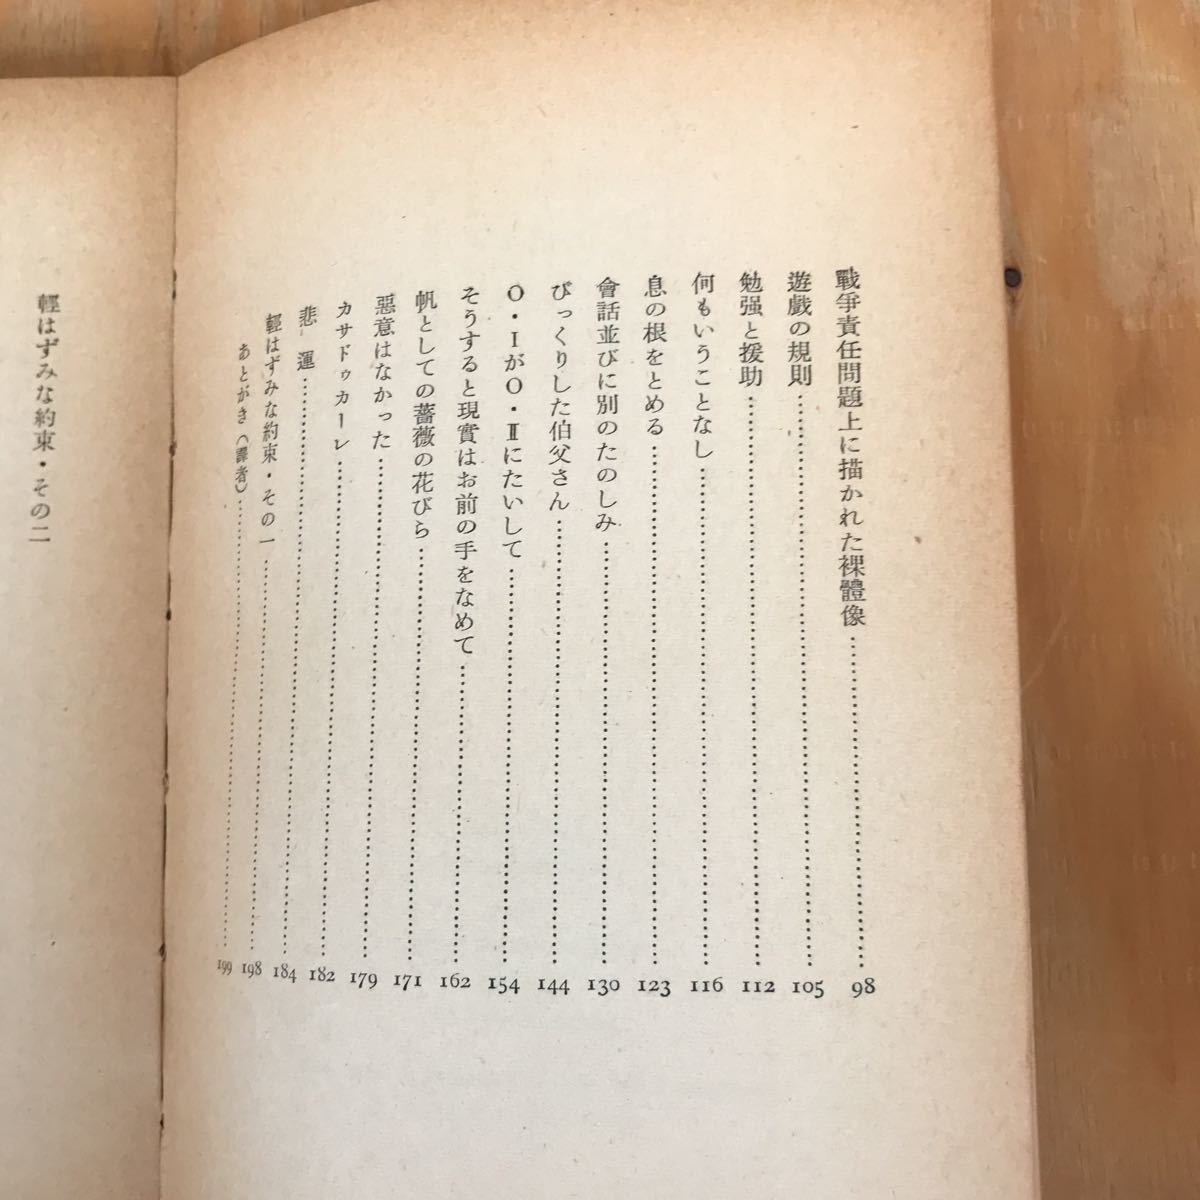 戰爭責任問題上に描かれた裸體像……98
遊戲の規則……105
勉强と援助……112
何もいうことなし……116
息の根をとめる……123
會話並びに別のたのしみ……130
びっくりした伯父さん……144
O・ⅠがO・Ⅱにたいして……154
そうすると現實はお前の手をなめて……162
帆としての薔薇の花びら……171
惡意はなかった……179
カサドゥカーレ……182
悲運……184
輕はずみな約束・その一……198
あとがき（譯者）……199
輕はずみな約束・その二